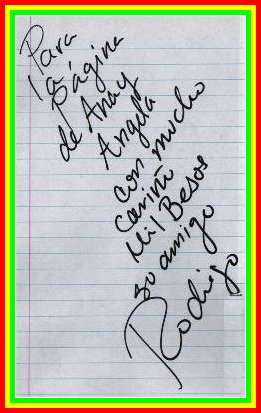 Para
la Página
de Ana y
Angela
con mucho
cariño
Mil Besos
su amigo
Rodrigo